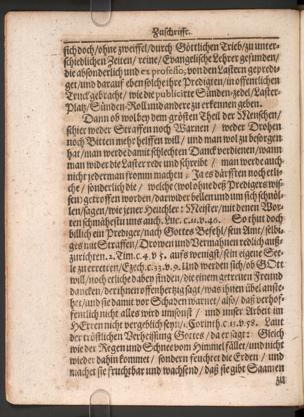 Zuschrifft.
sich doch/ohne zweiffel/durch Göttlichen Trieb/zu unter-
schiedlichen Zeiten/reine/Evangelische Lehrer gefunden/
die absonderlich und ex professo, von den Lastern gepredi-
get/und darauf eben solche ihre Predigten/in öffentlichen
Truck gebracht/wie die publicirte Sünden-zedel/Laster-
Platz/Sünden-Roll und andere zu erkennen geben.
Dann ob wol bey dem grösten Theil der Menschen/
schier weder Straffen noch Warnen/weder Drohen
noch Bitten mehr helffen will/und man wol zu besorgen
hat/man werde damit schlechten Danck verdienen/wann
man wider die Laster rede und schreibe/man werde auch
nicht jederman fromm machen: Ja es därfften noch etli-
che/sonderlich die/welche (wol ohne deß Predigers wis-
sen) getroffen worden/darwider bellen und ihm sich schnöl-
len/sagen/wie jener Heuchler: Meister/mit denen Wor-
ten schmähestu uns auch. Luc. c. 11. v. 40. So thut doch
billich ein Prediger/nach Gottes Befehl/sein Amt/selbi-
ges mit Straffen/Drowen und Vermahnen redlich auß-
zurichten. 2. Tim. c. 4. v. 5. aufs wenigst/sein eigene See-
le zu erretten/Ezech. c. 33. v. 9. Und werden sich/ob GOtt
will/noch etliche dabey finden/die einem getreuen Freund
dancken/der ihnen offenhertzig sagt/was ihnen übel anste-
het/und sie damit vor Schaden warnet/also/daß verhof-
fenlich nicht alles wird umsonst/und unser Arbeit im
HErren nicht vergeblich seyn/1. Corinth. c. 15. v. 58. Laut
der tröstlichen Verheissung Gottes/da er sagt: Gleich
wie der Regen und Schnee vom Himmel fället/und nicht
wieder dahin kommet/sondern feuchtet die Erden/und
machet sie fruchtbar und wachsend/daß sie gibt Saamen
zu